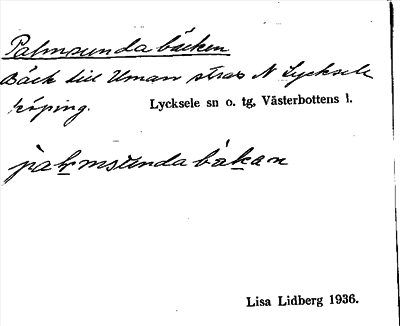 Palmsundabäcken
Bäck till Uman strax N Lycksele
köping. Lycksele sn o. tg, Västerbottens l.
palmsundabäkan
Lisa Lidberg 1936.